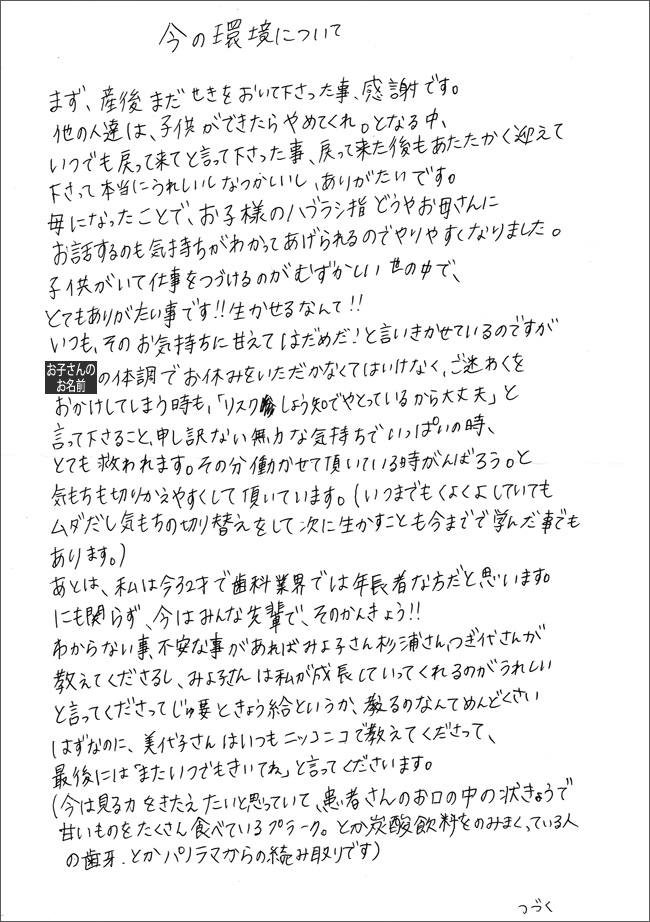 今の環境について
まず、産後まだせきをおいて下さった事、感謝です。
他の人達は、子供ができたらやめてくれ。となる中、
いつでも戻って来てと言って下さった事、戻って来た後もあたたかく迎えて
下さって本当にうれしいしなつかいいし、ありがたいです。
母になったことで、お子様のハブラシ指どうやお母さんに
お話するのも気持ちがわかってあげられるのでやりやすくなりました。
子供がいて仕事をつづけるのがむずかしい世の中で、
とてもありがたい事です!!生かせるなんて!!
いつも、そのお気持ちに甘えてはだめだ!と言いきかせているのですが
お子さんの
お名前
の体調でお休みをいただかなくてはいけなく、ご迷わくを
おかけしてしまう時も、「リスクしょう知でやとっているから大丈夫」と
言って下さること、申し訳ない無力な気持ちでいっぱいの時、
とても救われます。その分働かせて頂いている時がんばろう。と
気もちも切りかえやすくして頂いています。(いつまでもくよくよしていても
ムダだし気もちの切り替えをして次に生かすことも今までで学んだ事でも
あります。)
あとは、私は今32才で歯科業界では年長者な方だと思います。
にも関らず、今はみんな先輩で、そのかんきょう!!
わからない事、不安な事があればみよ子さん杉浦さん、つぎ代さんが
教えてくださるし、みよ子さんは私が成長していってくれるのがうれしい
と言ってくださってじゅ要ときょう給というか、教るのなんてめんどくさい
はずなのに、美代子さんはいつもニッコニコで教えてくださって、
最後には「またいつでもきいてね」と言ってくださいます。
(今は見る力をきたえたいと思っていて、患者さんのお口の中の状きょうで
甘いものをたくさん食べているプラーク。とか炭酸飲料をのみまくっている人
の歯牙.とかパノラマからの読み取りです)
つづく